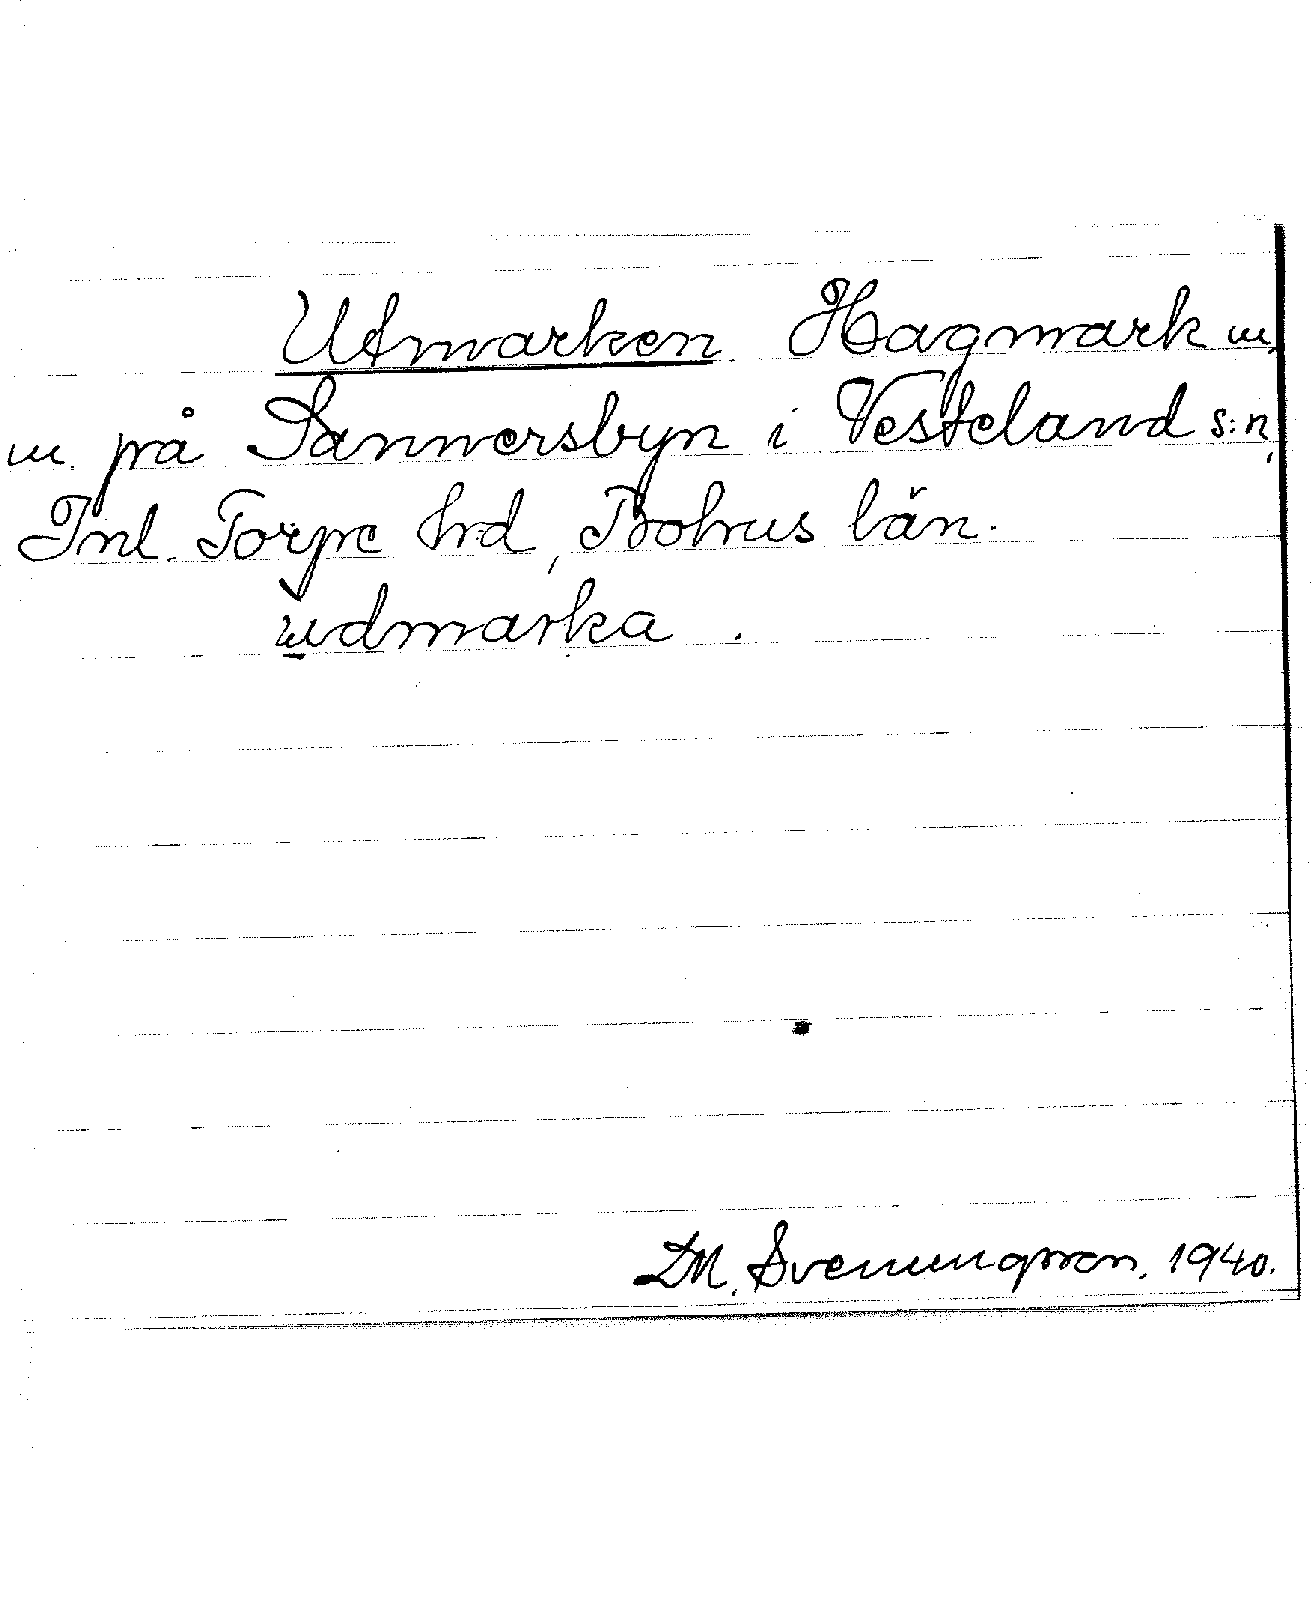 Utmarken Hagmark m.
m. på Sannersbyn i Vesteland s:n,
Inl. Torpe hrd, Bohus län.
udmarka.
DM. Svenungsson. 1940.